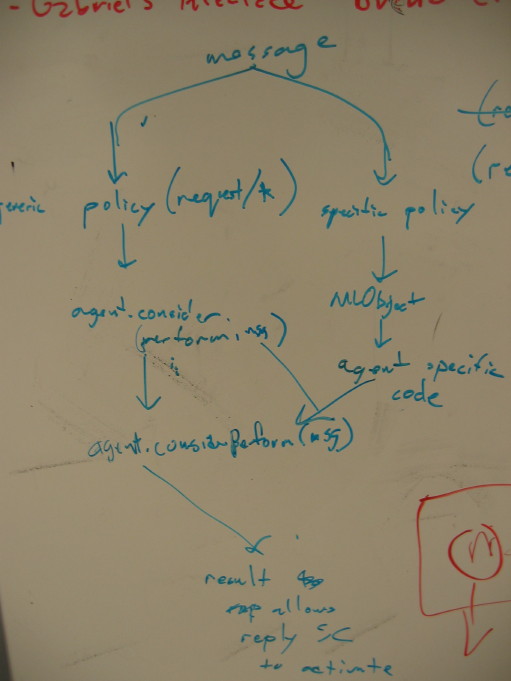 - Gabriel's
message
generic policy (request/*) specific policy
(re
(re
agent.consider
(perform, msg)
MLObject
agent specific
code
agent.considerPerform(msg)
result
allows
reply SC
to activate
M